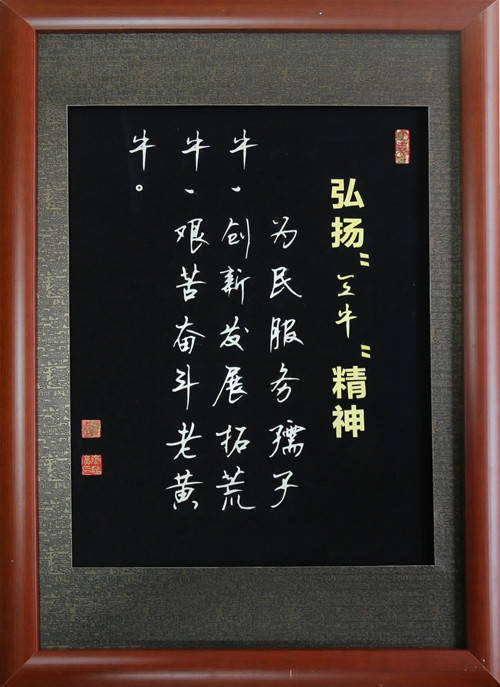 弘扬“三牛”精神
为民服务孺子
牛、创新发展拓荒
牛、艰苦奋斗老黄
牛。